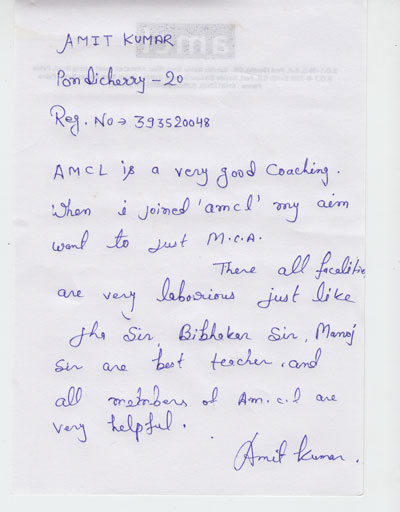 AMIT KUMAR
Pondicherry - 20
Reg. No → 393520048
AMCL is a very good Coaching.
When i joined 'amcl' my aim
want to just M.C.A.
There all facelities
are very labourious just like
Jha Sir, Bibhakar Sir, Manoj
Sir are best teacher. and
all members of Am.c.l are
very helpful.
Amit Kumar.